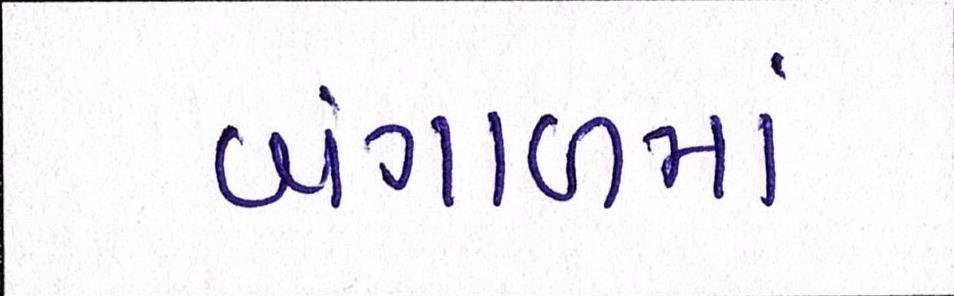 બંગાળમાં